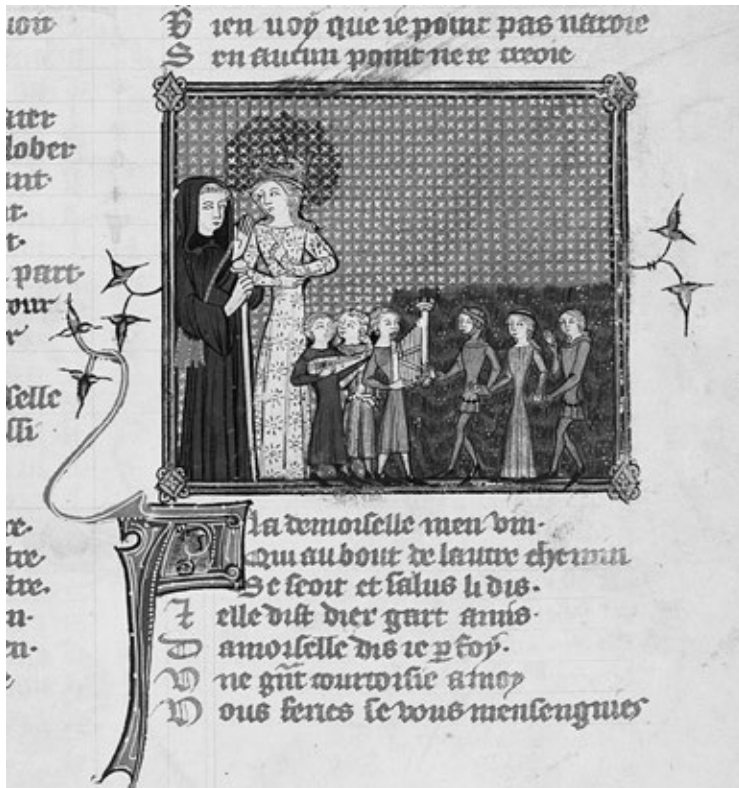 lober
part·
our
selle
lli
tre·
tre·
en·
B ien uoy que ie point pas naroie
S en aucun point ne te creoie
la demoiselle men vin·
Qui au bout de lautre chemin
Se seoit et salus li dis·
E elle dist dier gart amis·
D amoiselle dis ie p̱ foy·
U ne gñt courtoisie a moy
V ous feries se vous mensengnies